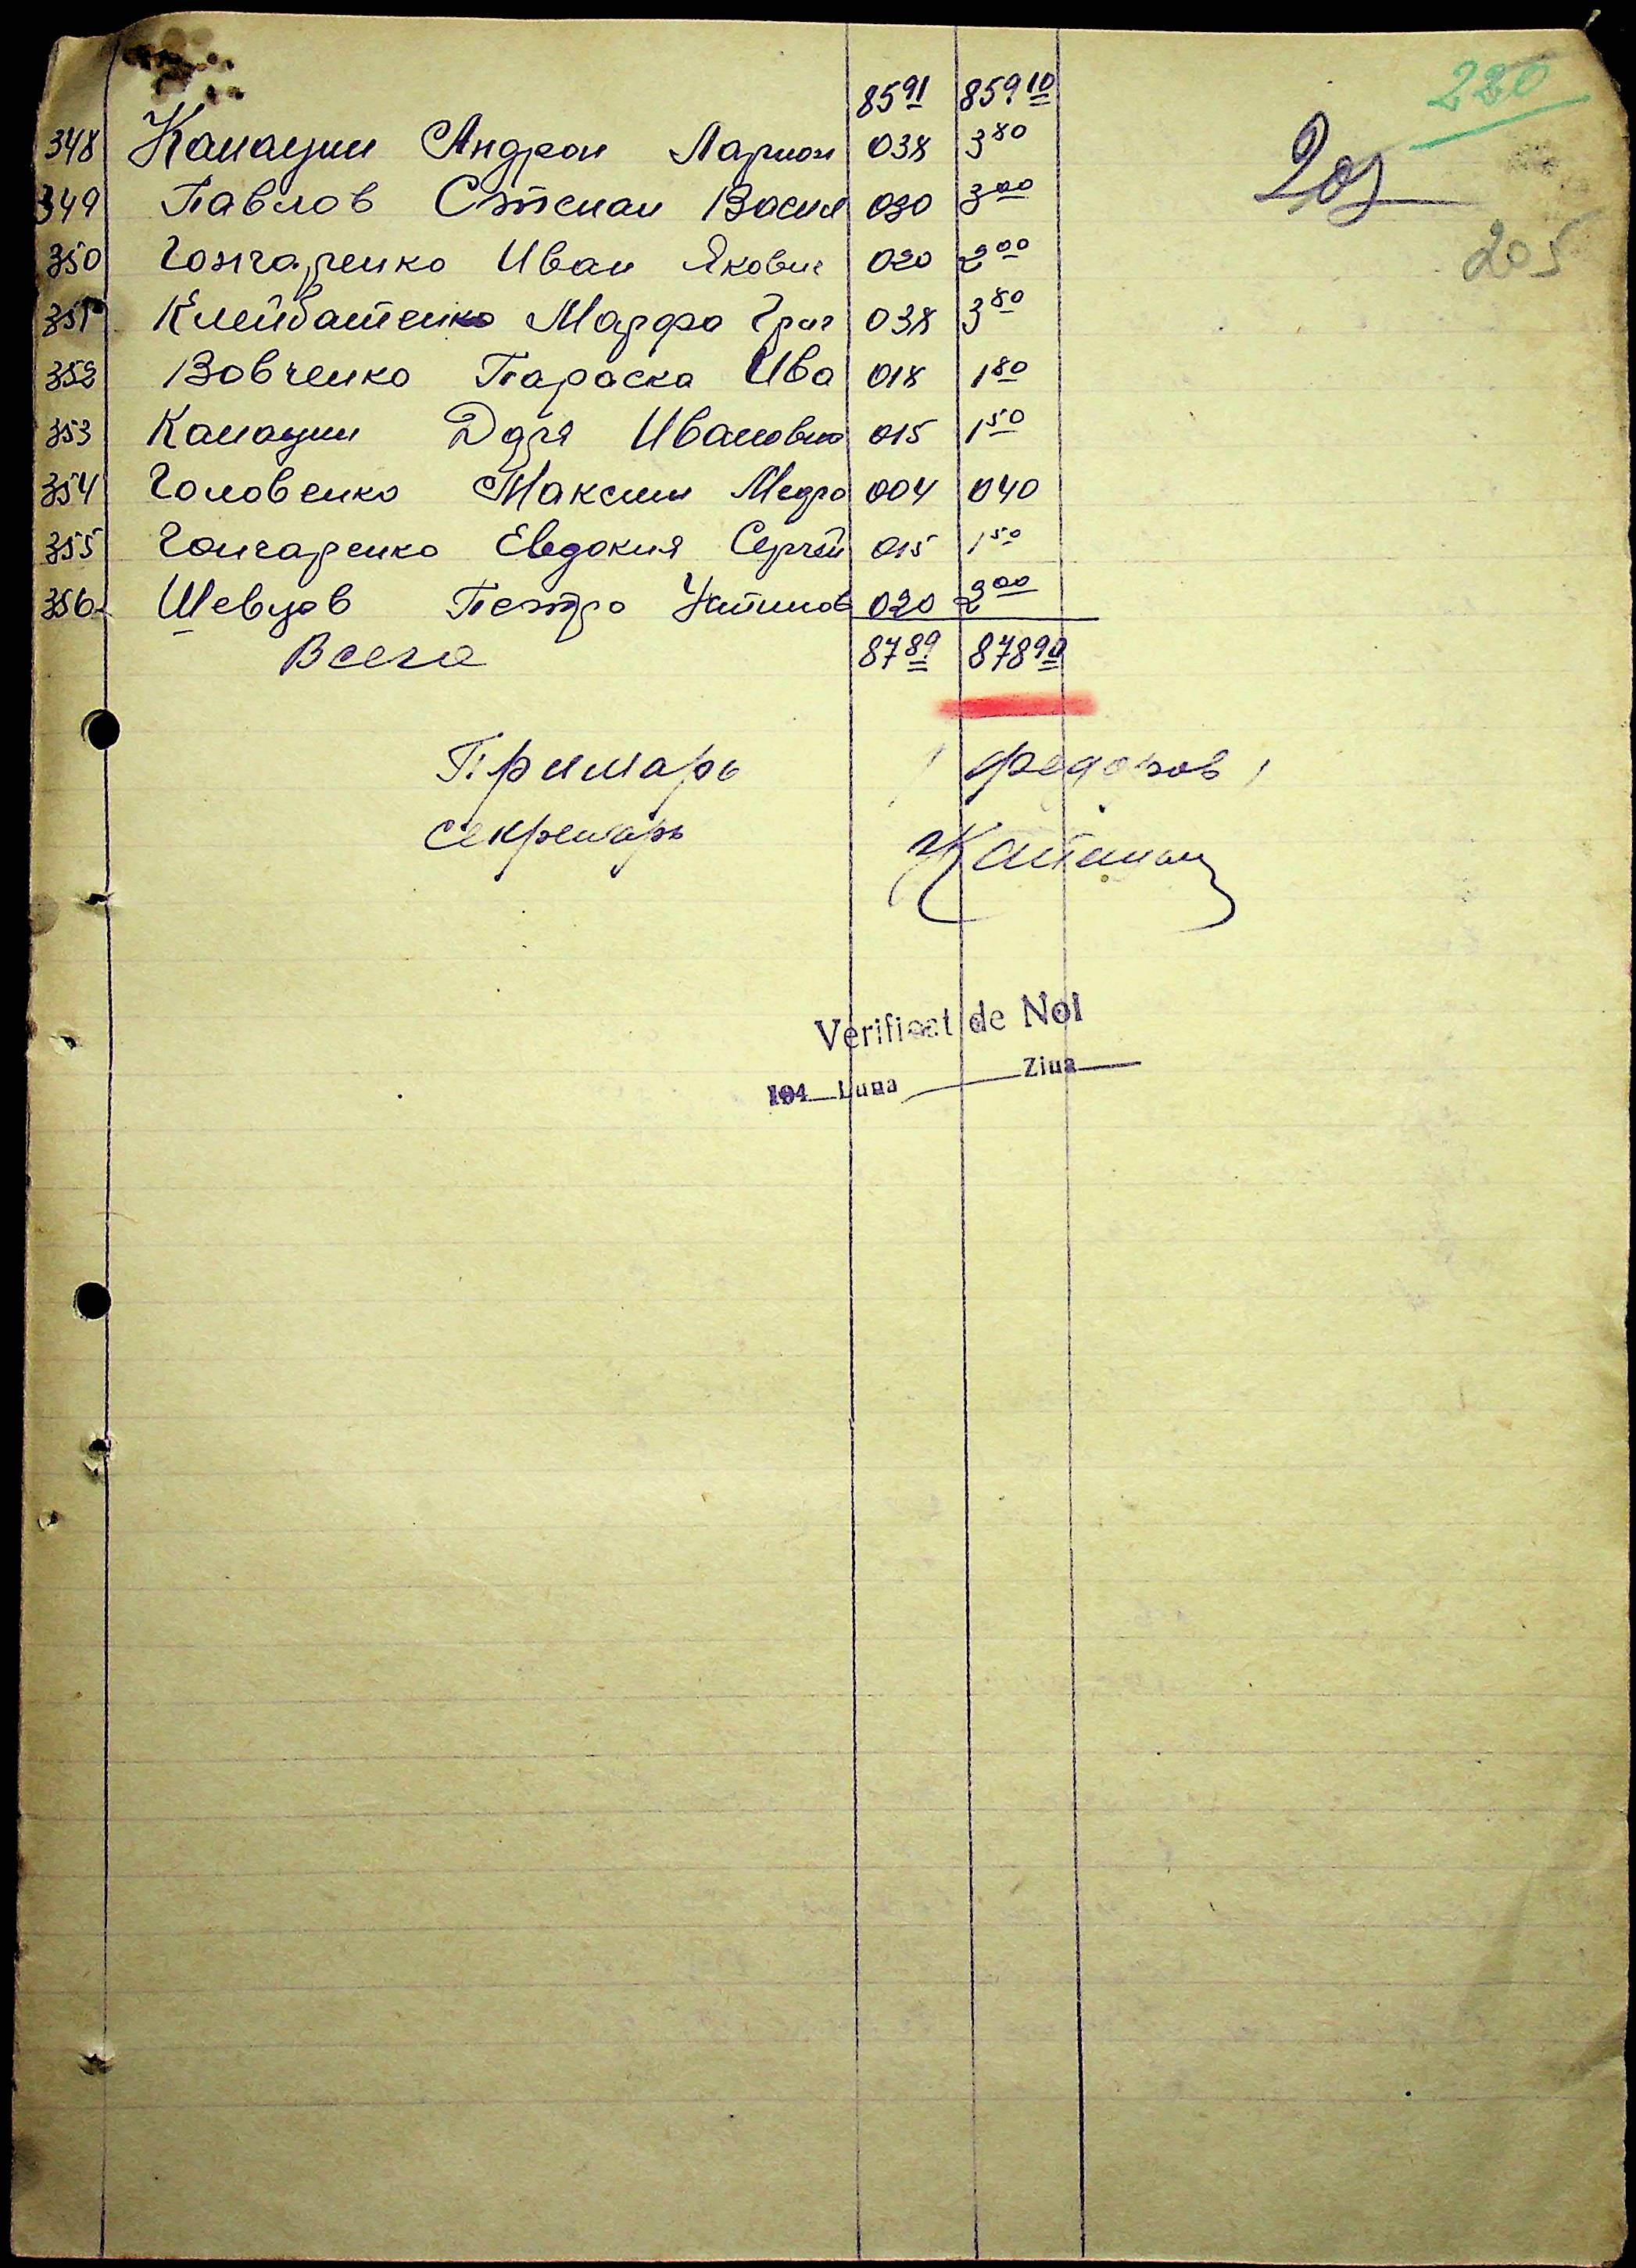 220
203
205
85 91 859 10
348 Канацин Андрон Ларион 038 3 80
349 Павлов Степан Васил 030 3 00
350 Гончаренко Иван Якович 020 2 00
351 Клейбатенко Марфа Григ 038 3 80
352 Вовченко Параска Ива 018 1 80
353 Канацин Даря Ивановна 015 1 50
354 Головенко Максим 004 040
355 Гончаренко Евдокия Сергей 015 1 50
356 Шевцов Петро Устинов 020 2 00
Всего 87 89 878 90
Примарь / Федоров /
секретарь
Verificat de Noi
194 Luna Ziua